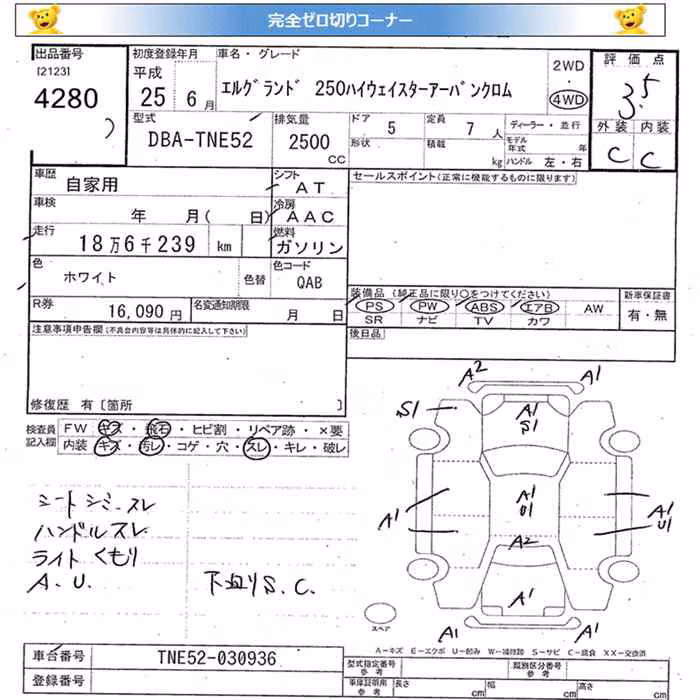 完全ゼロ切りコーナー
出品番号 初度登録年月 車名・グレード 2WD・4WD 評価点
[2123] 4280
平成 25 6月 エルグランド 250ハイウェイスターアーバンクロム 3.5
型式 排気量 ドア 5 定員 7人 ディーラー・並行 外装 内装
DBA-TNE52 2500 CC 形状 積載 kg モデル年式 年 ハンドル 左・右 C C
車歴 自家用 シフト AT セールスポイント(正常に機能するものに限ります)
車検 年 月( 日) 冷房 AAC
走行 18万6千239 km 燃料 ガソリン
色 ホワイト 色替 色コード QAB
装備品 (純正品に限り○をつけてください) 新車保証書
R券 16,090円 名変通知期限 月 日 PS PW ABS エアB AW 有・無
SR ナビ TV カワ
注意事項申告欄(不具合内容等は具体的に記入して下さい) 後日品
修復歴 有〔箇所 〕
検査員記入欄 FW キズ・飛石・ヒビ割・リペア跡・×要
内装 キズ・汚レ・コゲ・穴・スレ・キレ・破レ
A2 A1
S1 A1 S1
シート シミ・スレ
ハンドルスレ
ライト くもり
A.U. 下廻りS.C.
A1 A1 U1 A1 U1
A2
A1
A1 A1
スペア
A-キズ E-エクボ U-凹み W-補修跡 S-サビ C-腐食 XX-交換済
車台番号 TNE52-030936 型式指定番号 類別区分番号
登録番号 参考 参考
車庫証明用参考 長さ cm 幅 cm 高さ cm